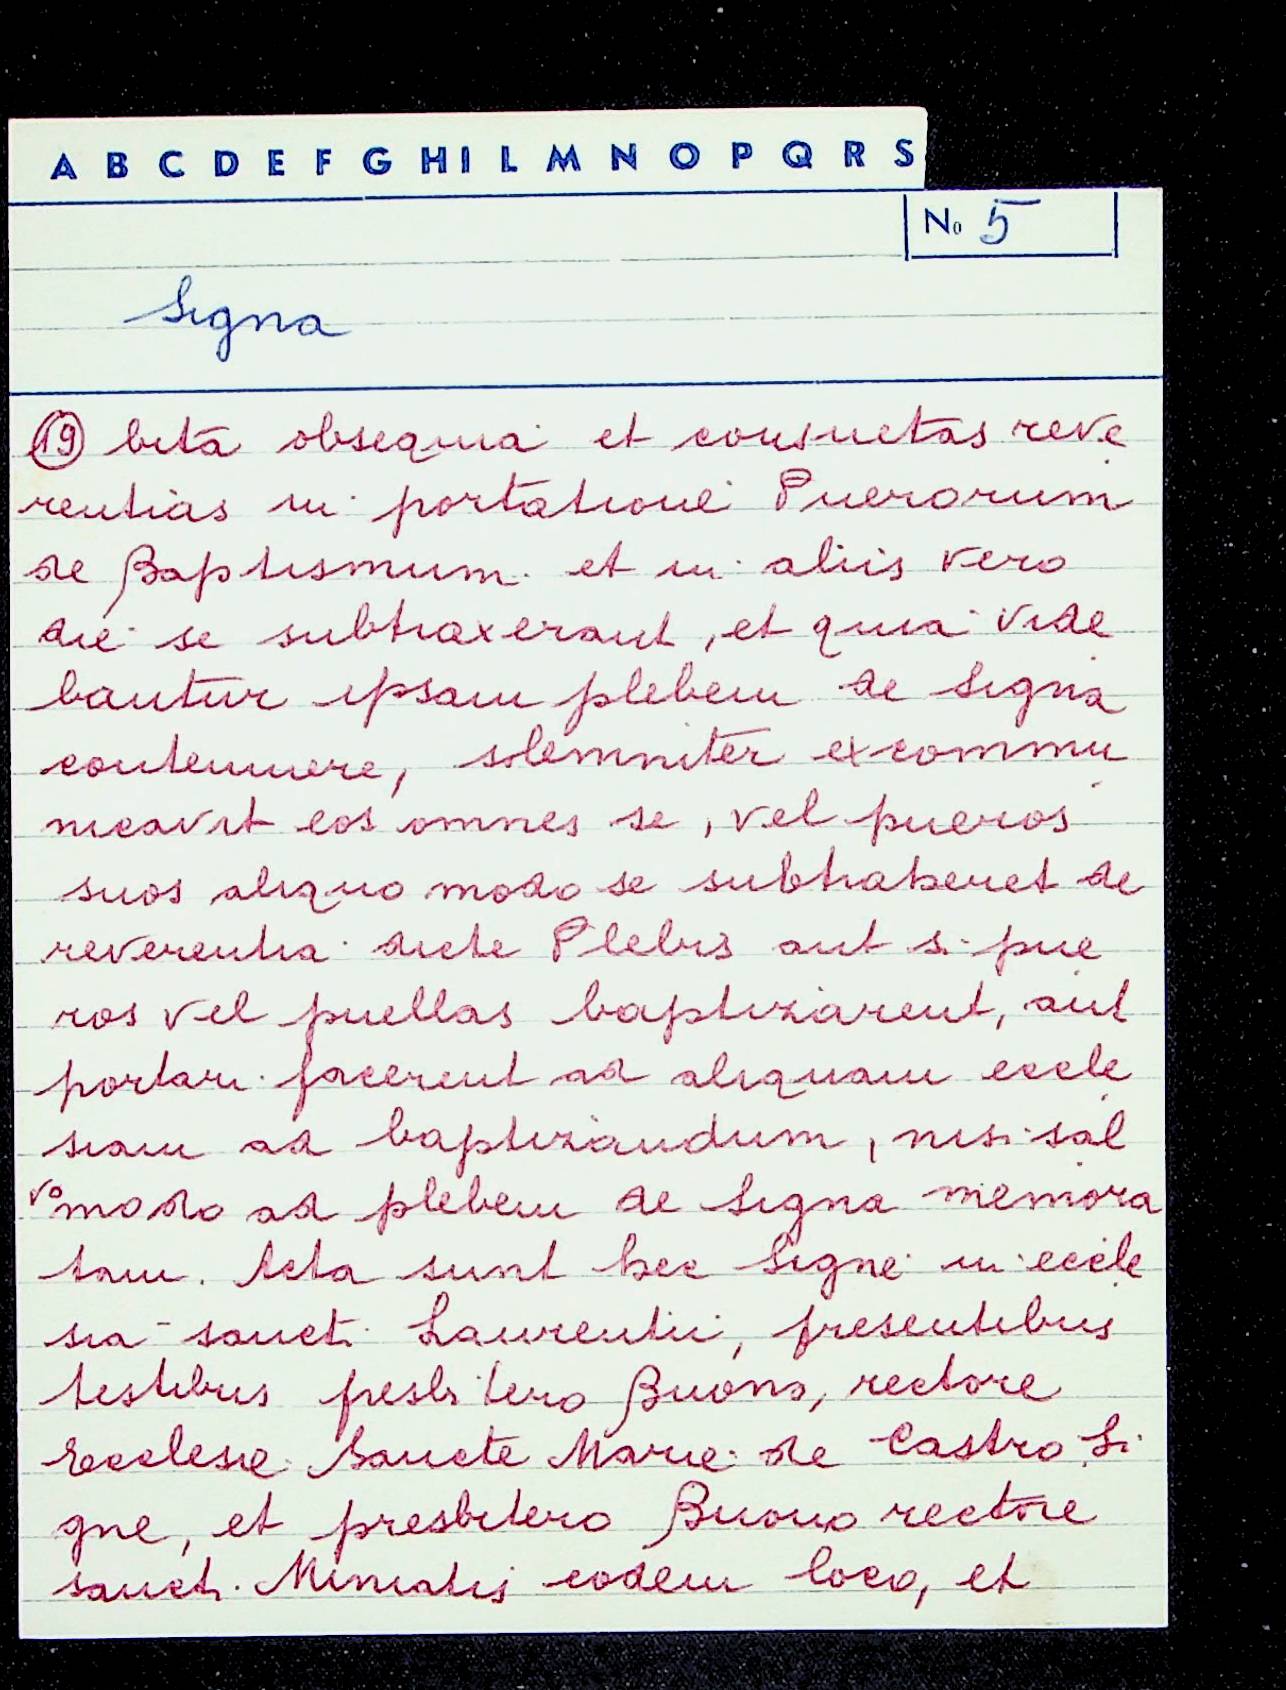 A B C D E F G H I L M N O P Q R S
No 5
Signa
19 bita obsequia et consuetas reve
rentias in portatione Puerorum
de Baptismum et in aliis vero
die se subtraxerant, et quia vide
bantur ipsam plebem de Signa
contemnere, solemniter excommu
nicavit eos omnes se, vel pueros
suos aliquo modo se subtraheret de
reverentia dicte Plebis aut si pue
ros vel puellas baptiziarent, aut
portari facerent ad aliquam eccle
siam ad baptiziandum, nisi sal
vo modo ad plebem de Signa memora
tam. Acta sunt hec Signe in eccle
sia sancti Laurentii, presentibus
testibus presbitero Buono, rectore
Ecclesie Sancte Marie de Castro Si
gne, et presbitero Buono rectore
sancti Miniatis eodem loco, et